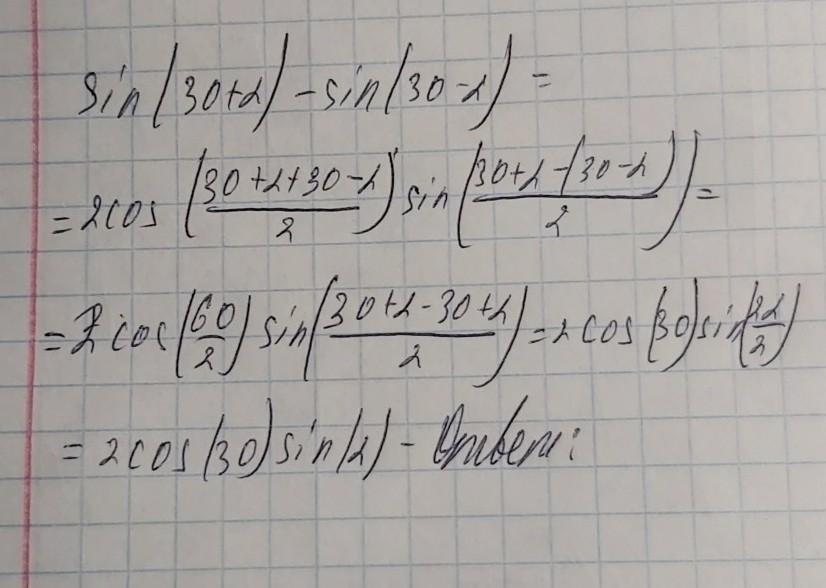 sin(30+α)-sin(30-α)=
=2cos((30+α+30-α)/2)sin((30+α-(30-α))/2)=
=2cos(60/2)sin((30+α-30+α)/2)=2cos(30)sin(2α/2)
=2cos(30)sin(α) - Ответ: